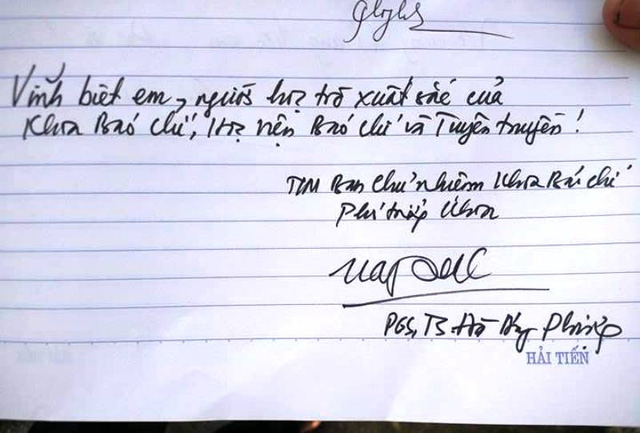 Vĩnh biệt em, người học trò xuất sắc của
Khoa Báo chí, Học viện Báo chí và Tuyên truyền!
TM Ban chủ nhiệm Khoa Báo chí
Phó trưởng Khoa
PGS, TS. Hà Huy Phượng
HẢI TIẾN